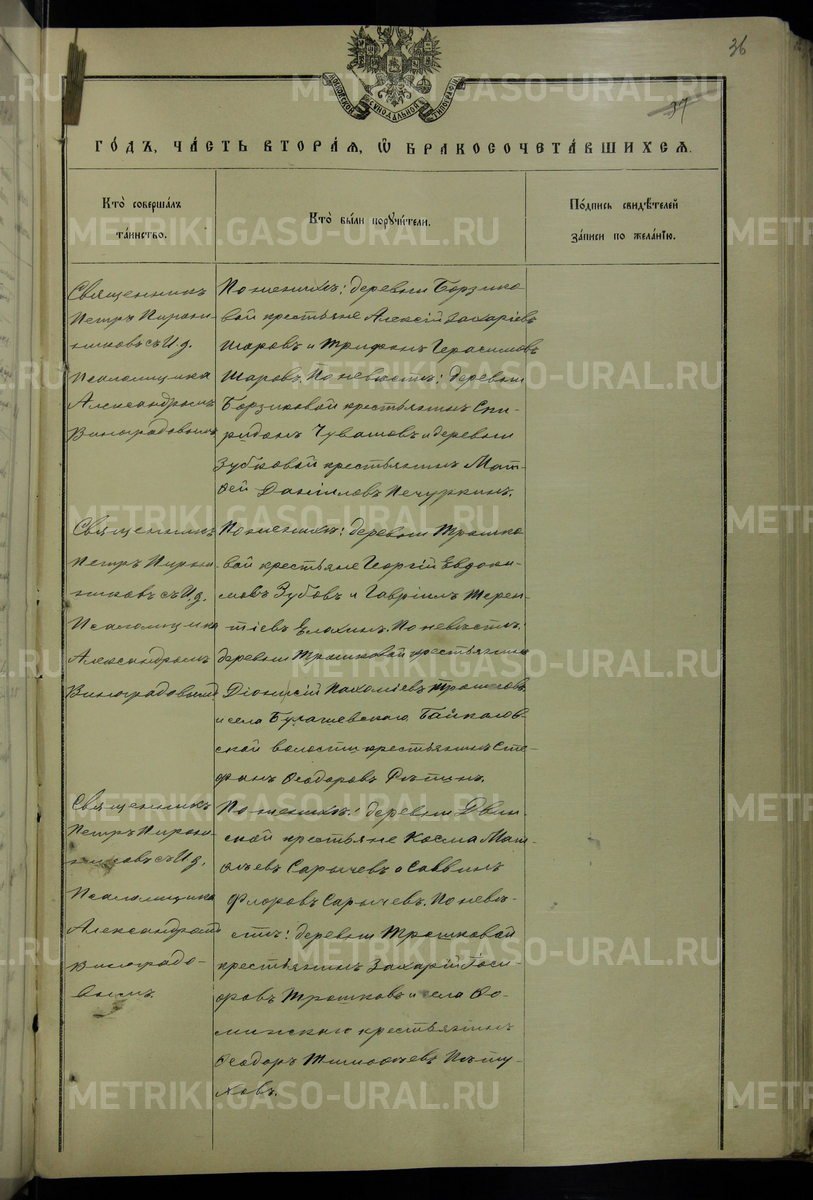 36
37
МОСКОВСКОЙ СѴНОДАЛЬНОЙ ТИПОГРАФІИ
ГО́ДЪ, ЧА́СТЬ ВТОРА́Я, Ѡ БРАКОСОЧЕТА́ВШИХСЯ.
Кто̀ совершáлъ
тáинство.
Кто̀ бы́ли порꙋчи́тели.
По́дпись свидѣ́телей
за́писи по жела́нїю.
Священникъ
Петръ Пирож-
никовъ съ И.д.
Псаломщика
Александромъ
Виноградовымъ
По женихѣ: деревни Борзико
вой крестьяне Алексій Захаріевъ
Шаровъ и Трифонъ Герасимовъ
Шаровъ. По невѣстѣ: деревни
Борзиковой крестьянинъ Спи-
ридонъ Чувашовъ и деревни
Зубковой крестьянинъ Мат-
ѳей Даніиловъ Печуркинъ.
Священникъ
Петръ Пирож
никовъ съ И.д.
Псаломщика
Александромъ
Виноградовымъ
По женихѣ: деревни Трошко
вой крестьяне Георгій Евдоки-
мовъ Зубовъ и Гавріилъ Терен-
тіевъ Елохинъ. По невѣстѣ:
деревни Трошковой крестьянинъ
Діонисій Пахоміевъ Трошковъ
и села Булашевскаго Байкалов-
ской волости крестьянинъ Сте-
фанъ Ѳеодоровъ
Священникъ
Петръ Пирож-
никовъ съ И.д.
Псаломщика
Александромъ
Виноградо-
вымъ
По женихѣ: деревни Двин-
ской крестьяне Косма Мат-
ѳѣевъ Сарычевъ и Саввинъ
Флоровъ Сарычевъ. По невѣ-
стѣ: деревни Трошковой
крестьянинъ Захарій
Трошковъ и села Ѳо-
минскаго крестьянинъ
Ѳеодоръ Тимоѳеевъ Пѣту-
ховъ.
METRIKI.GASO-URAL.RU